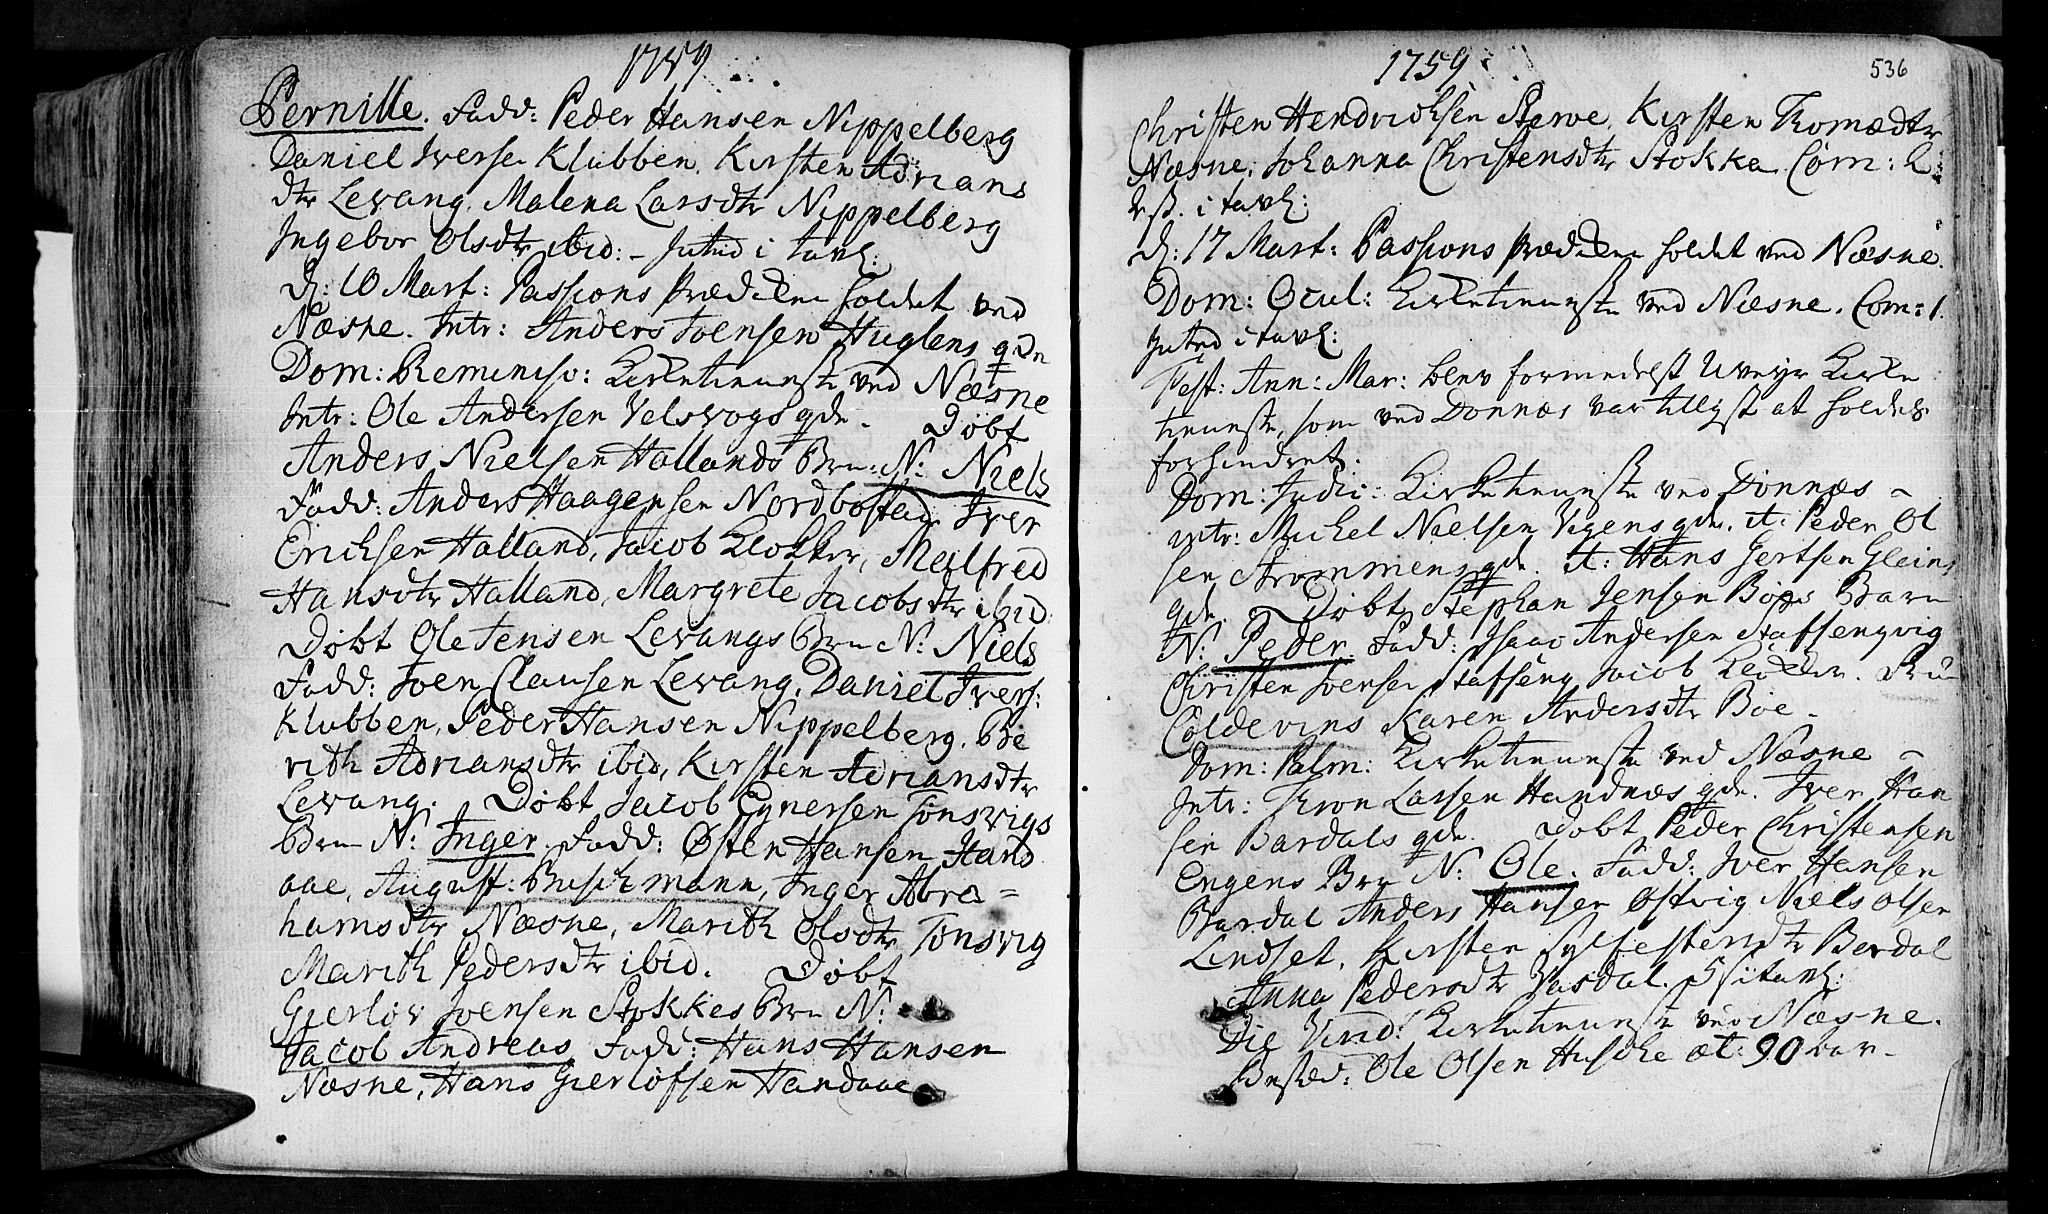 1759
Pernille. Fadd: Peder Hansen Nippelberg
Daniel Iversen Klubben. Kirsten Adrians
dtr Levang. Malena Larsdtr Nippelberg
Ingebor Olsdtr ibid: - i tavl:
d: 10 Mart: Passions Prædiken holdet ved
Næsne. Intr: Anders Joensen Huglens qde
Dom: Reminisc: Kirketienneste ved Næsne
Intr: Ole Andersen Velsvogs qde. Døbt
Anders Nielsen Hallands Brn: N: Niels
Fadd: Anders Haagensen Nordbostad. Iver
Erichsen Halland, Jacob Klokker, Melfred
Hansdtr Halland, Margrete Jacobsdtr ibid.
Døbt Ole Jensen Levangs Brn N: Niels
Fadd: Joen Clausen Levang. Daniel Ivers:
Klubben, Peder Hansen Nippelberg. Be
rith Adriansdtr ibid, Kirsten Adriansdtr
Levang. Døbt Jacob Egnersen Tonsvigs
Brn N: Inger. Fadd: Østen Hansen Hans
aae, August: Buschmann, Inger Abra=
hamsdtr Næsne, Marith Olsdtr Tonsvig
Marith Pedersdtr ibid. Døbt
Gierløv Joensen Stokkes Brn N:
Jacob Andreas Fadd: Hans Hansen
Næsne, Hans Gierløfsen Handaae
1759
536
Christen Hendrichsen Sterve. Kirsten Thomædtr
Næsne. Johanna Christensdtr Stokka. Com:
i tavl:
d: 17 Mart: Passions Prædiken holdet ved Næsne.
Dom: Ocul: Kirketienneste ved Næsne. Com: 1.
i tavl:
Fest: Ann: Mar: blev formedelst Uveyr Kirke
tienneste, som ved Dønnæs var tillyst at holdes
forhindret.
Dom: Judic: Kirketienneste ved Dønnæs -
intr: Michel Nielsen Vigens qde. it: Peder Ol
sen Strommens qde. it: Hans Gertsen Gleins
qde. Døbt Stephan Jensen Böes Barn
N: Peder. Fadd: Isaac Andersen Staffsengvig
Christen Joensen Staffseng Jacob Klokker.
Coldevins Karen Andersdtr Böe -
Dom: Palm: Kirketienneste ved Næsne -
Intr: Thron Larsen Handnæs qde. Iver Han
sen Bardals qde. Døbt Peder Christensen
Engens Brn N: Ole. Fadd: Iver Hansen
Bardal Anders Hansen Østvig Niels Olsen
Lindset, Kirsten Sylfestersdtr Berdal
Anna Pedersdtr Vasdal. i tavl:
Die Vird: Kirketienneste ved Næsne.
Ole Olsen Husche æt: 90 aar -